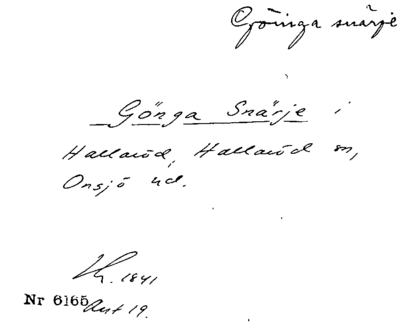 Göinga snärje
Gönga Snärje i
Hallaröd, Hallaröd sn,
Onsjö hd.
1841
Nr 6165 Akt 19.